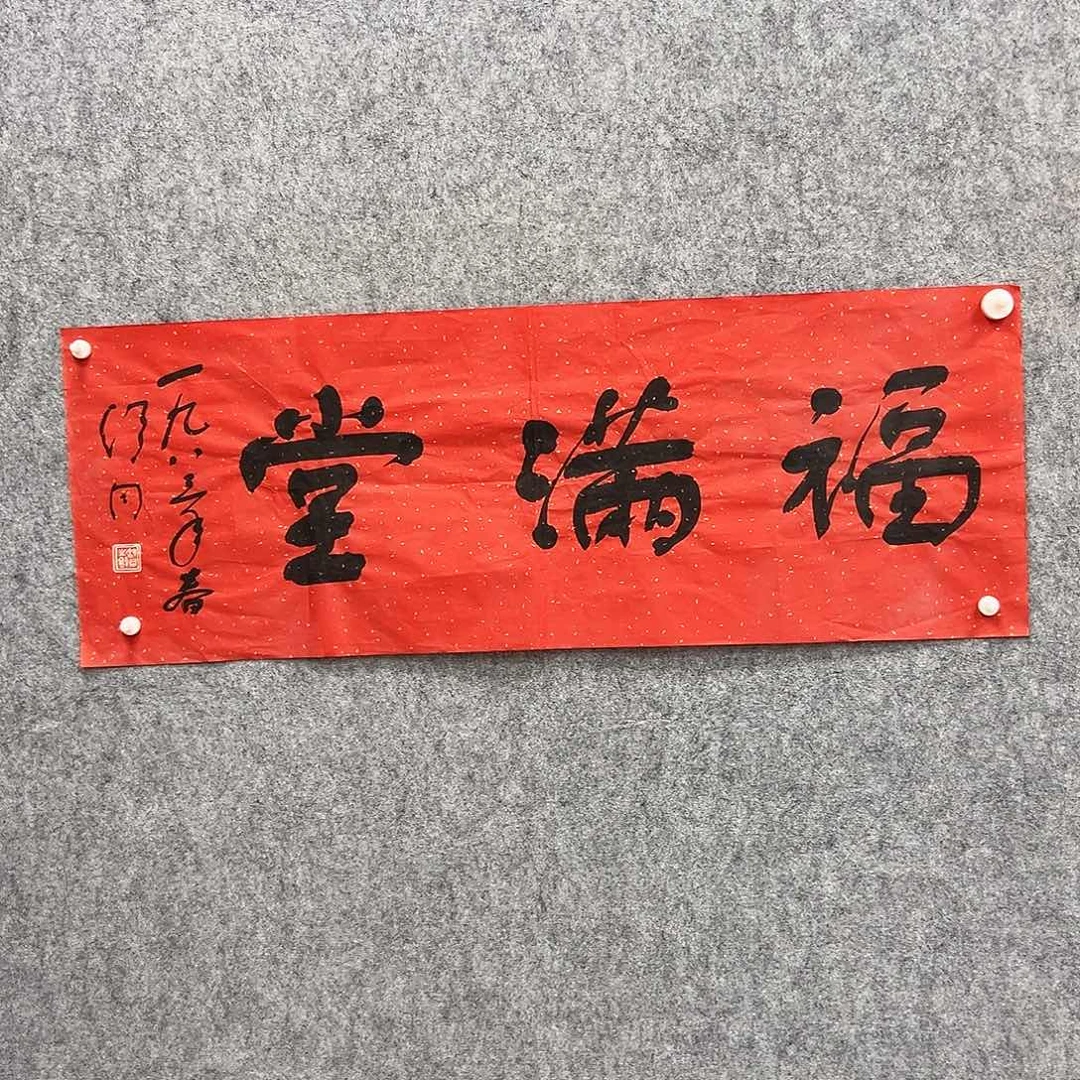 福滿堂
一九八三年春
舒同